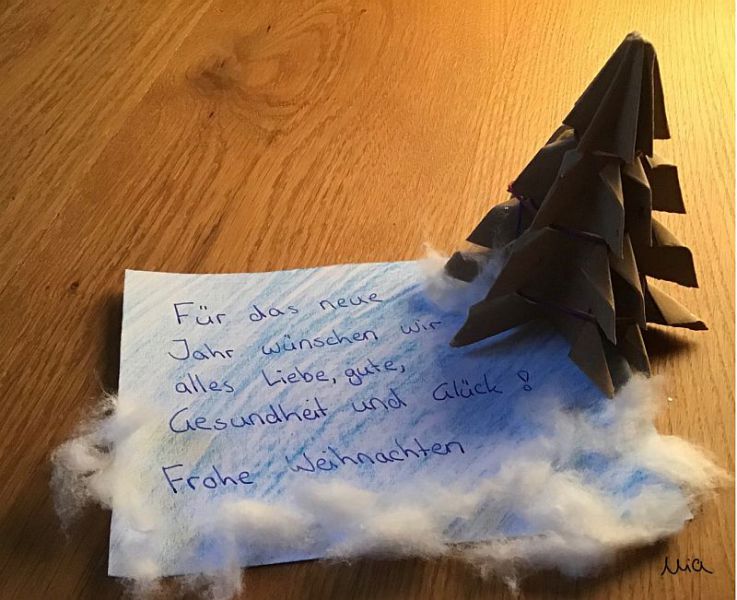 Für das neue
Jahr wünschen wir
alles Liebe, gute,
Gesundheit und Glück!
Frohe Weihnachten
Mia